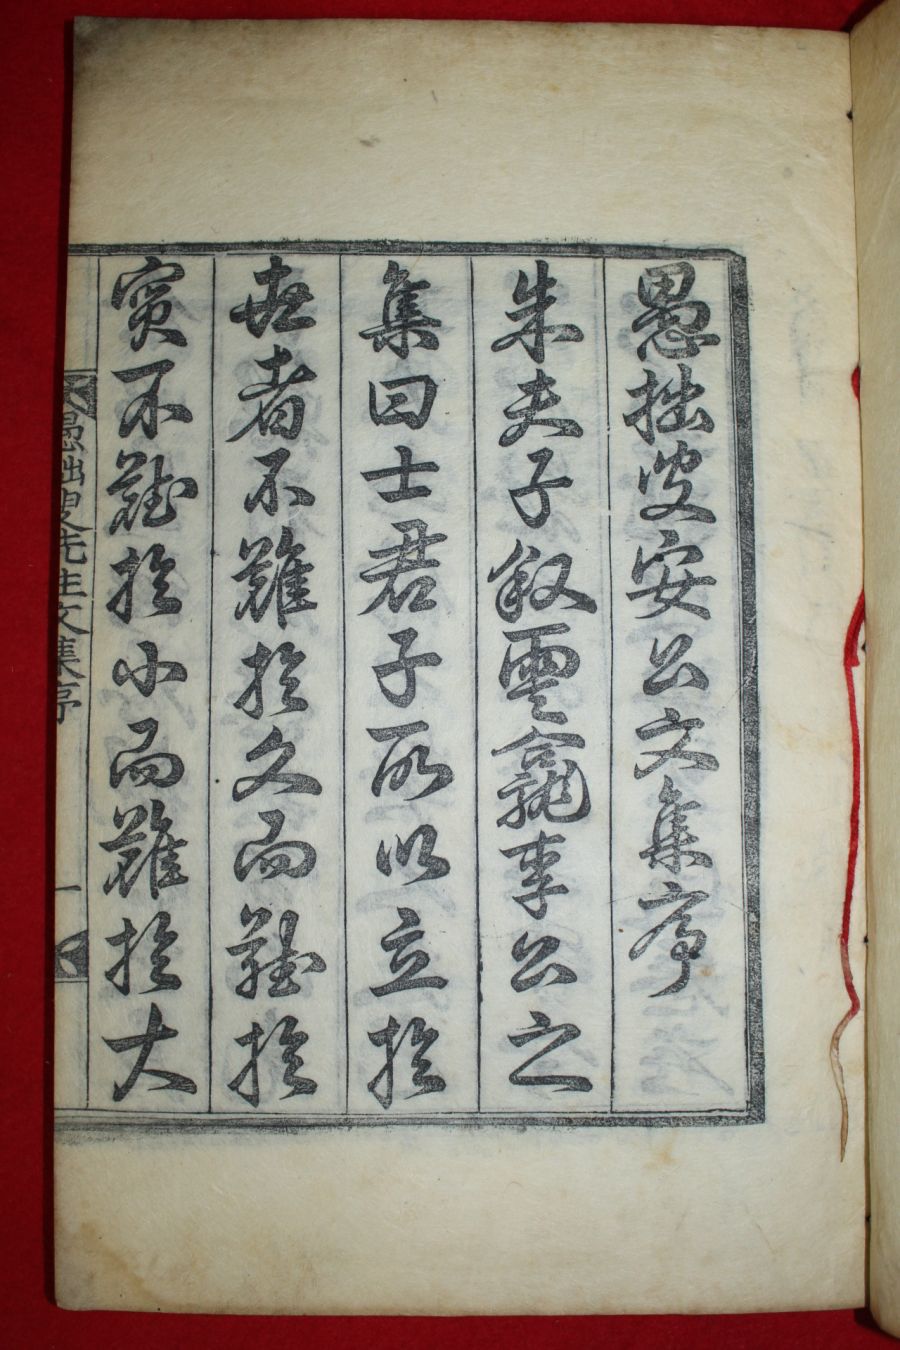 愚拙叟安公文集序
朱夫子叙雲龕李公之
集曰士君子所以立扵
世者不難扵文而難扵
實不難扵小而難扵大
愚拙叟先生文集序 一